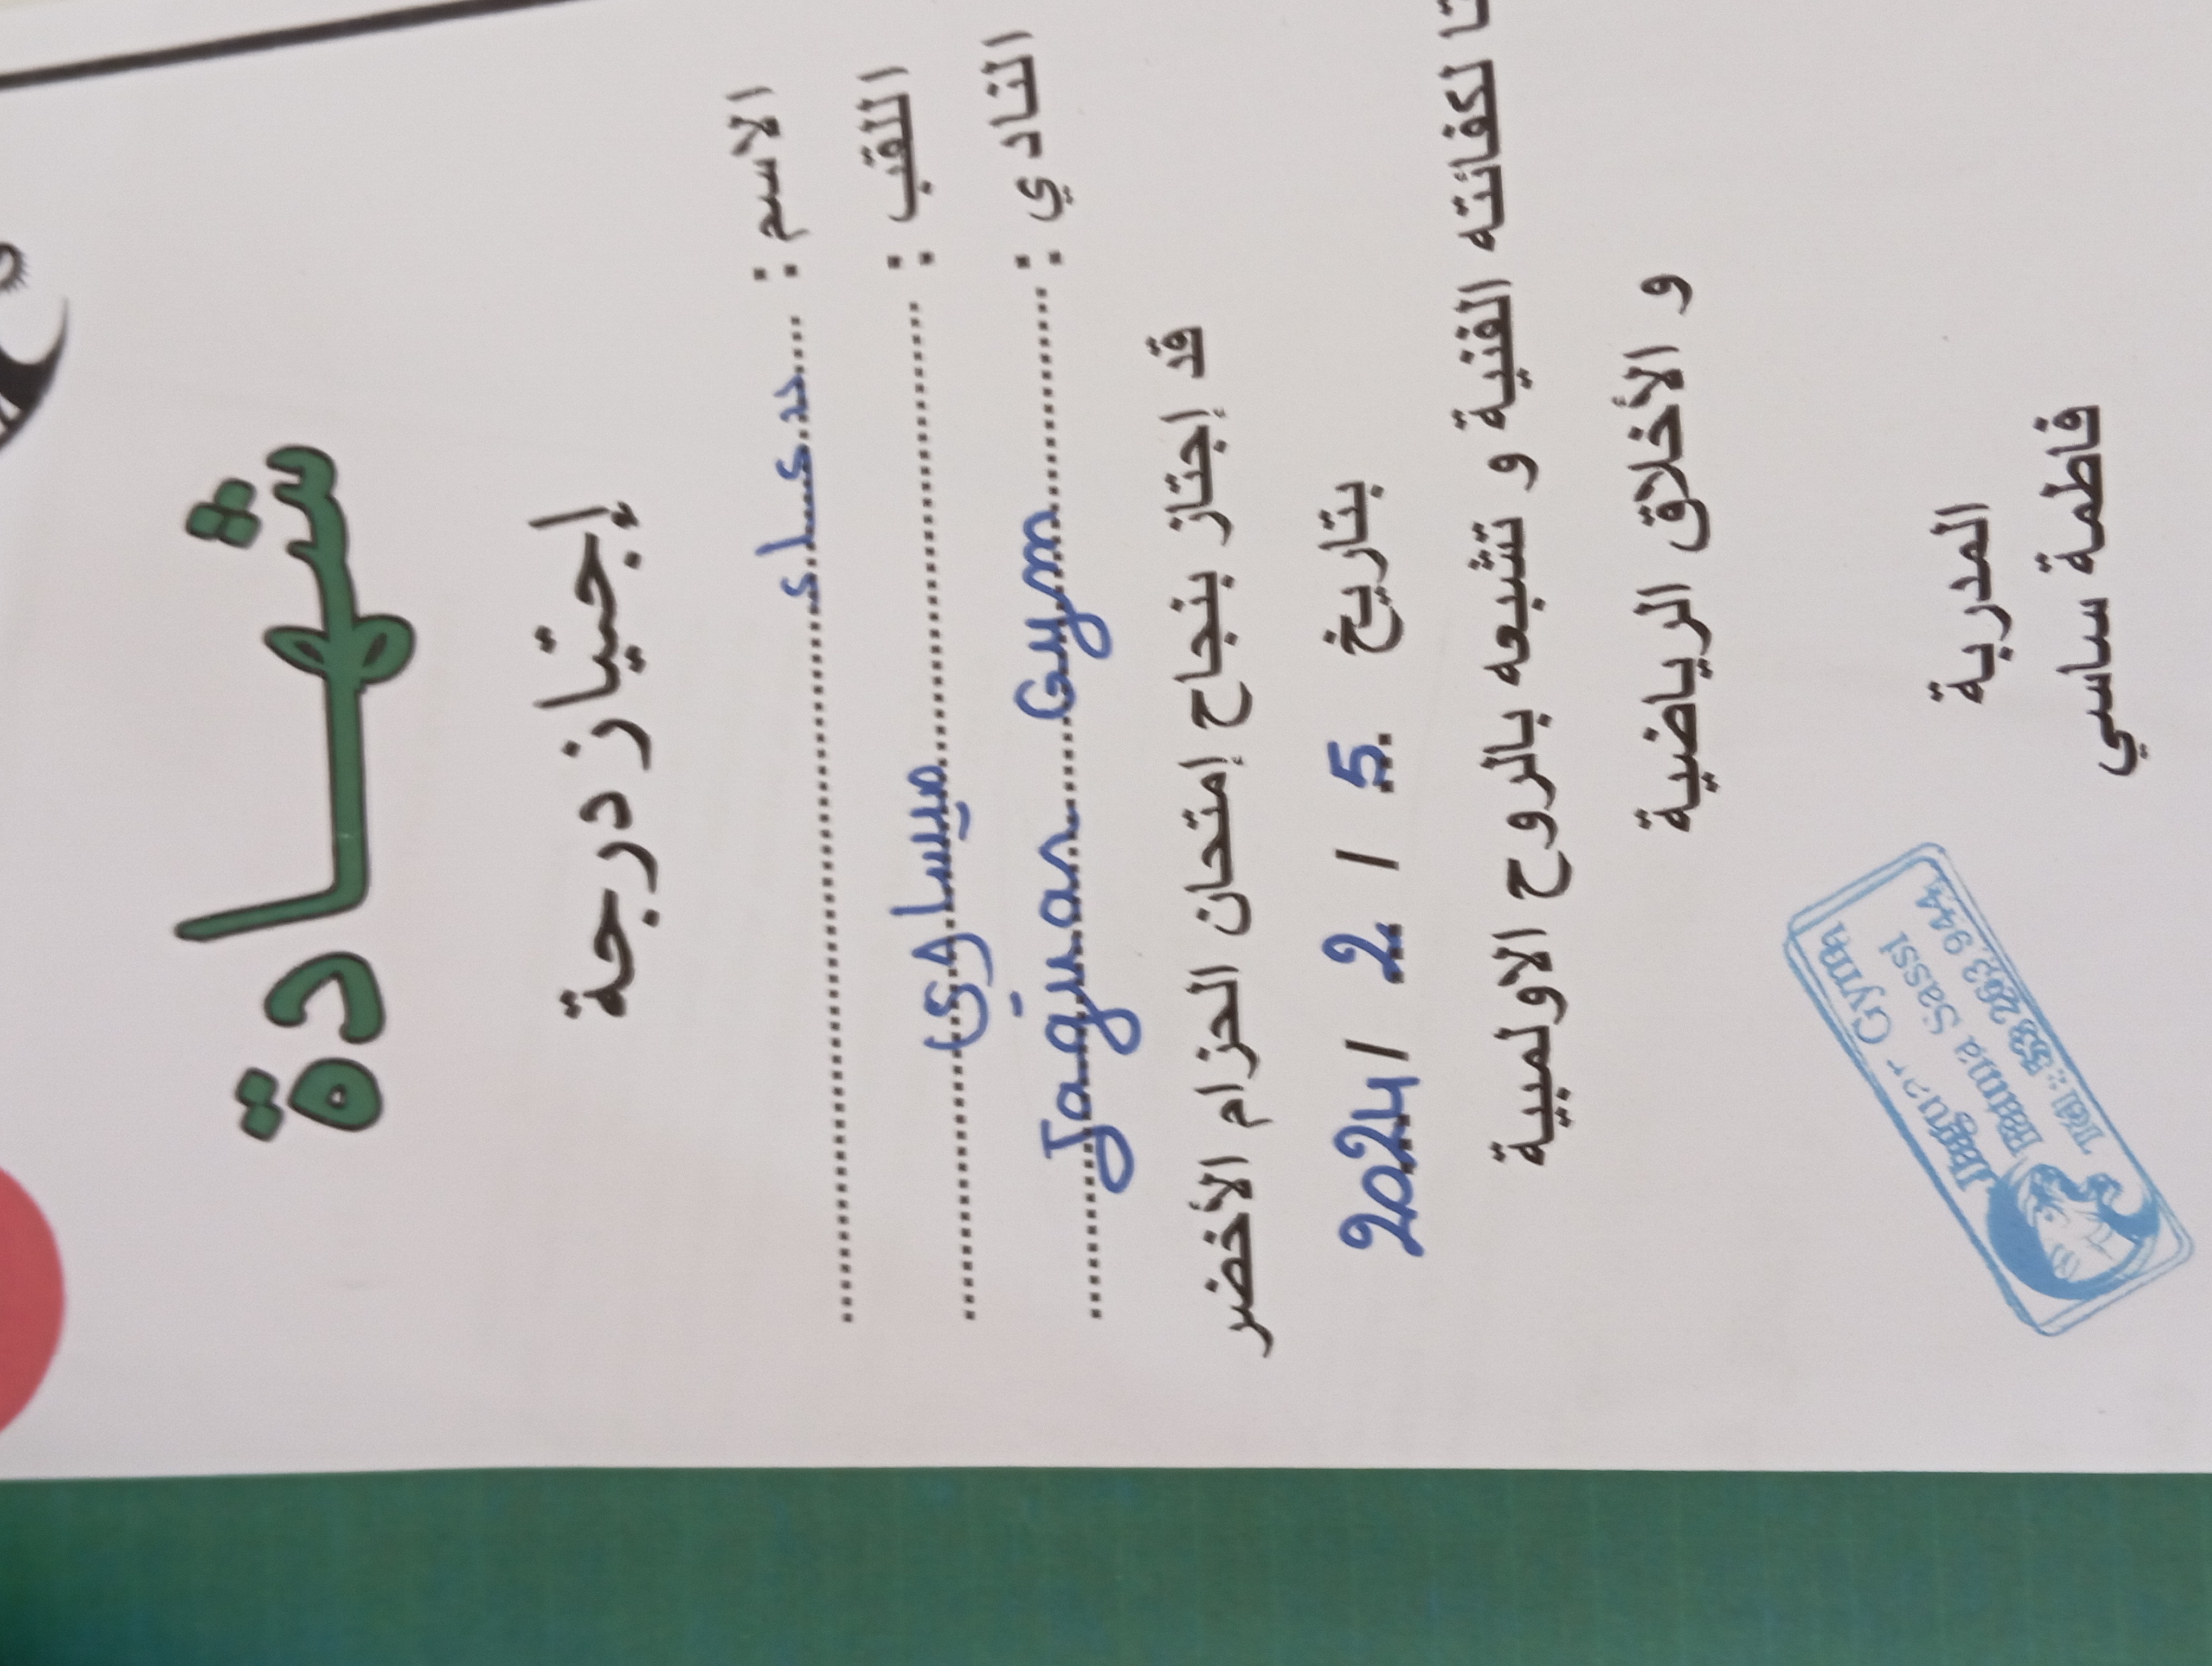 شهادة
إجتياز درجة
الاسم : دعاء
اللقب : ميساوي
النادي : Jaguar Gym
قد إجتاز بنجاح إمتحان الحزام الأخضر
بتاريخ 5 / 2 / 2024
لكفائته الفنية و تشبعه بالروح الاولمبية
و الأخلاق الرياضية
المدربة
فاطمة ساسي
Jaguar Gym
Fatma Sassi